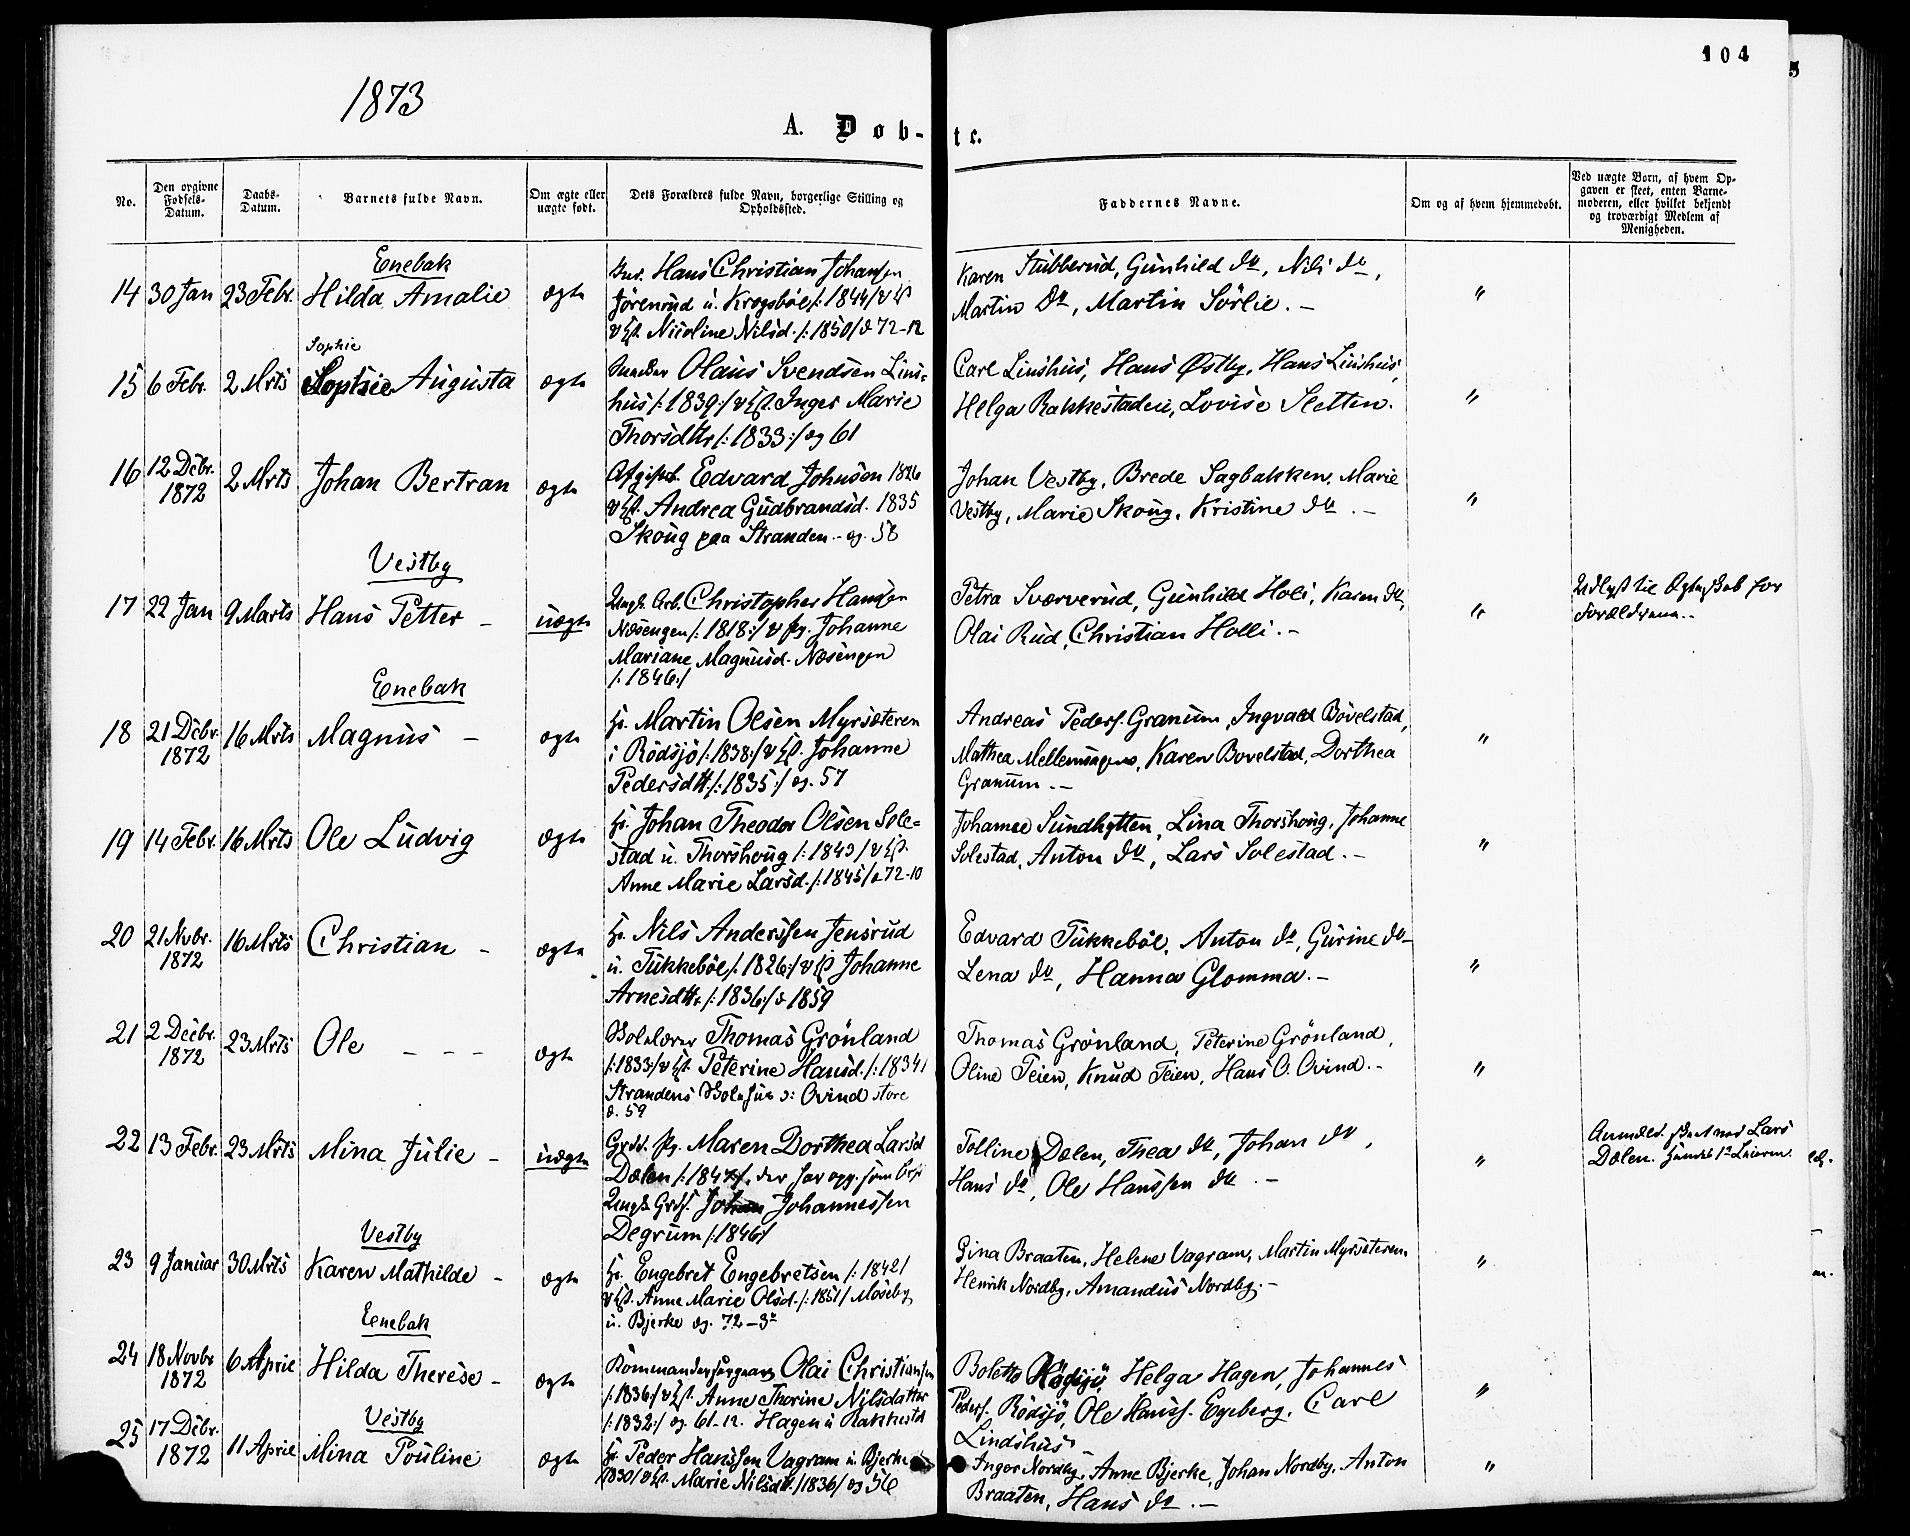 104
1873
A. Døb-
te.
No.
Den opgivne Fødsels-Datum.
Daabs-Datum.
Barnets fulde Navn.
Om ægte eller uægte født.
Dets Forældres fulde Navn, borgerlige Stilling og Opholdssted.
Faddernes Navne.
Om og af hvem hjemmedøbt.
Ved uægte Born, af hvem Op-
gaven er skeet, enten Barne-
moderen, eller hvilket bekjendt
og troværdigt Medlem af
Menigheden.
Enebak
14 30 Jan 23 Febr. Hilda Amalie ægte
Hans Christian Johansen
Jørenrud u. Krogsbøl /:1844/ v
Nicoline Nilsd. /:1850/ 72-12
Karen Stubberud, Gunhild do, Nils do,
Martin do, Martin Sörlie. - "
Sophie
15 6 Febr. 2 Mrts Sophie Augusta ægte
Olaus Svendsen Lins-
hus /:1839:/ v Inger Marie
Thorsdttr /:1833:/ og 61
Carl Linshus, Hans Østby, Hans Linshus,
Helga Rakkestaden, Lovise Sletten. "
16 12 Debr. 1872 2 Mrts Johan Bertran ægte
Edvard Johnsen 1826
Andrea Gudbrandsd. 1835
Skoug paa Stranden - og. 58
Johan Vestby, Brede Sagbakken, Marie
Vestby, Marie Skoug, Kristine do. - "
Vestby
17 22 Jan 9 Marts Hans Petter - uægte
Ungk. Arb. Christopher Hansen
Næsengen /:1818:/ v pg. Johanne
Mariane Magnusd. Næsengen
/:1846:/
Petra Sværverud, Gunhild Holi, Karen do,
Olai Rud, Christian Holli. - "
Udlyst til Ægteskab for
Forældrene.-
Enebak
18 21 Debr. 1872 16 Mrts Magnus - ægte
Martin Olsen Myrsæteren
i Rödsjö /:1838:/ v Johanne
Pedersdtt. /:1835:/ og. 57
Andreas Peders. Granum, Ingvald Bövelstad,
Mathea, Karen Bovelstad, Dorthea
Granum. - "
19 14 Febr. 16 Mrts Ole Ludvig ægte
Johan Theodor Olsen Sole-
stad u. Thorshoug /:1843/ v
Anne Marie Larsd. /:1845/ 72-10
Johanne Sundhytten, Lina Thorshoug, Johanne
Solestad, Anton do, Lars Solestad. - "
20 21 Nvbr. 1872 16 Mrts Christian - ægte
Nils Anderssen Jensrud
u. Tukkeböl /:1826:/ v Johanne
Arnesdttr /:1836:/ 1859
Edvard Tukkeböl, Anton do, Gurine do-
Lena do, Hanna Glomma. - "
21 2 Decbr. 1872 23 Mrts Ole - - - ægte
Thomas Grönland
/:1833:/ v Peterine Hansd. /:1834/
Strandens ɔ: Ovind store
59
Thomas Grönland, Peterine Grönland,
Oline Teien, Knud Teien, Hans O. Ovind. - "
22 13 Febr. 23 Mrts Mina Julie - uægte
pg. Maren Dorthea Larsd
Dælen /:1847/, der har opg. som
Ungk. Johan Johannessen
Degrum /:1846/
Tolline Dælen, Thea do, Johan do,
Hans do, Ole Hanssen do. - "
Lars
Dælen.
Vestby
23 9 Januar 30 Mrts Karen Mathilde - ægte
Engebret Engebretsen /:1842/
Anne Marie Olsd. /:1851/ Moseby
u. Bjerke og. 72-3
Gina Braaten, Helene Vagram, Martin Myrsæteren
Henrik Nordby, Amandus Nordby. - "
Enebak
24 18 Novbr 1872 6 April Hilda Therese - ægte
Olai Christiansen
/:1836:/ v Anne Thorine Nilsdatter
/:1832:/ og 61-12. Hagen u Rakkestd
Bolette Rödsjö, Helga Hagen, Johannes
Peders. Rödsjö, Ole Hanss. Egeberg, Carl
Lindshus - "
Vestby
25 17 Debr. 1872 11 April Mina Pouline ægte
Peder Hanssen Vagram u. Bjerke
1830/ v Marie Nilsdtt. /1836/ og 56
Inger Nordby, Anne Bjerke, Johan Nordby, Anton
Braaten, Hans do. - "